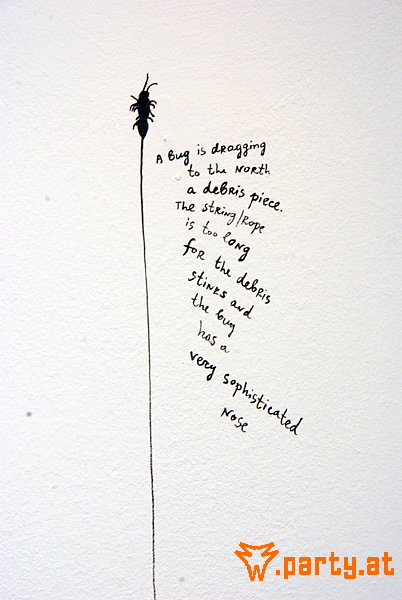 A Bug is dragging
to the North
a debris piece.
The string/Rope
is too long
for the debris
stinks and
the bug
has a
very sophisticated
Nose
w.party.at